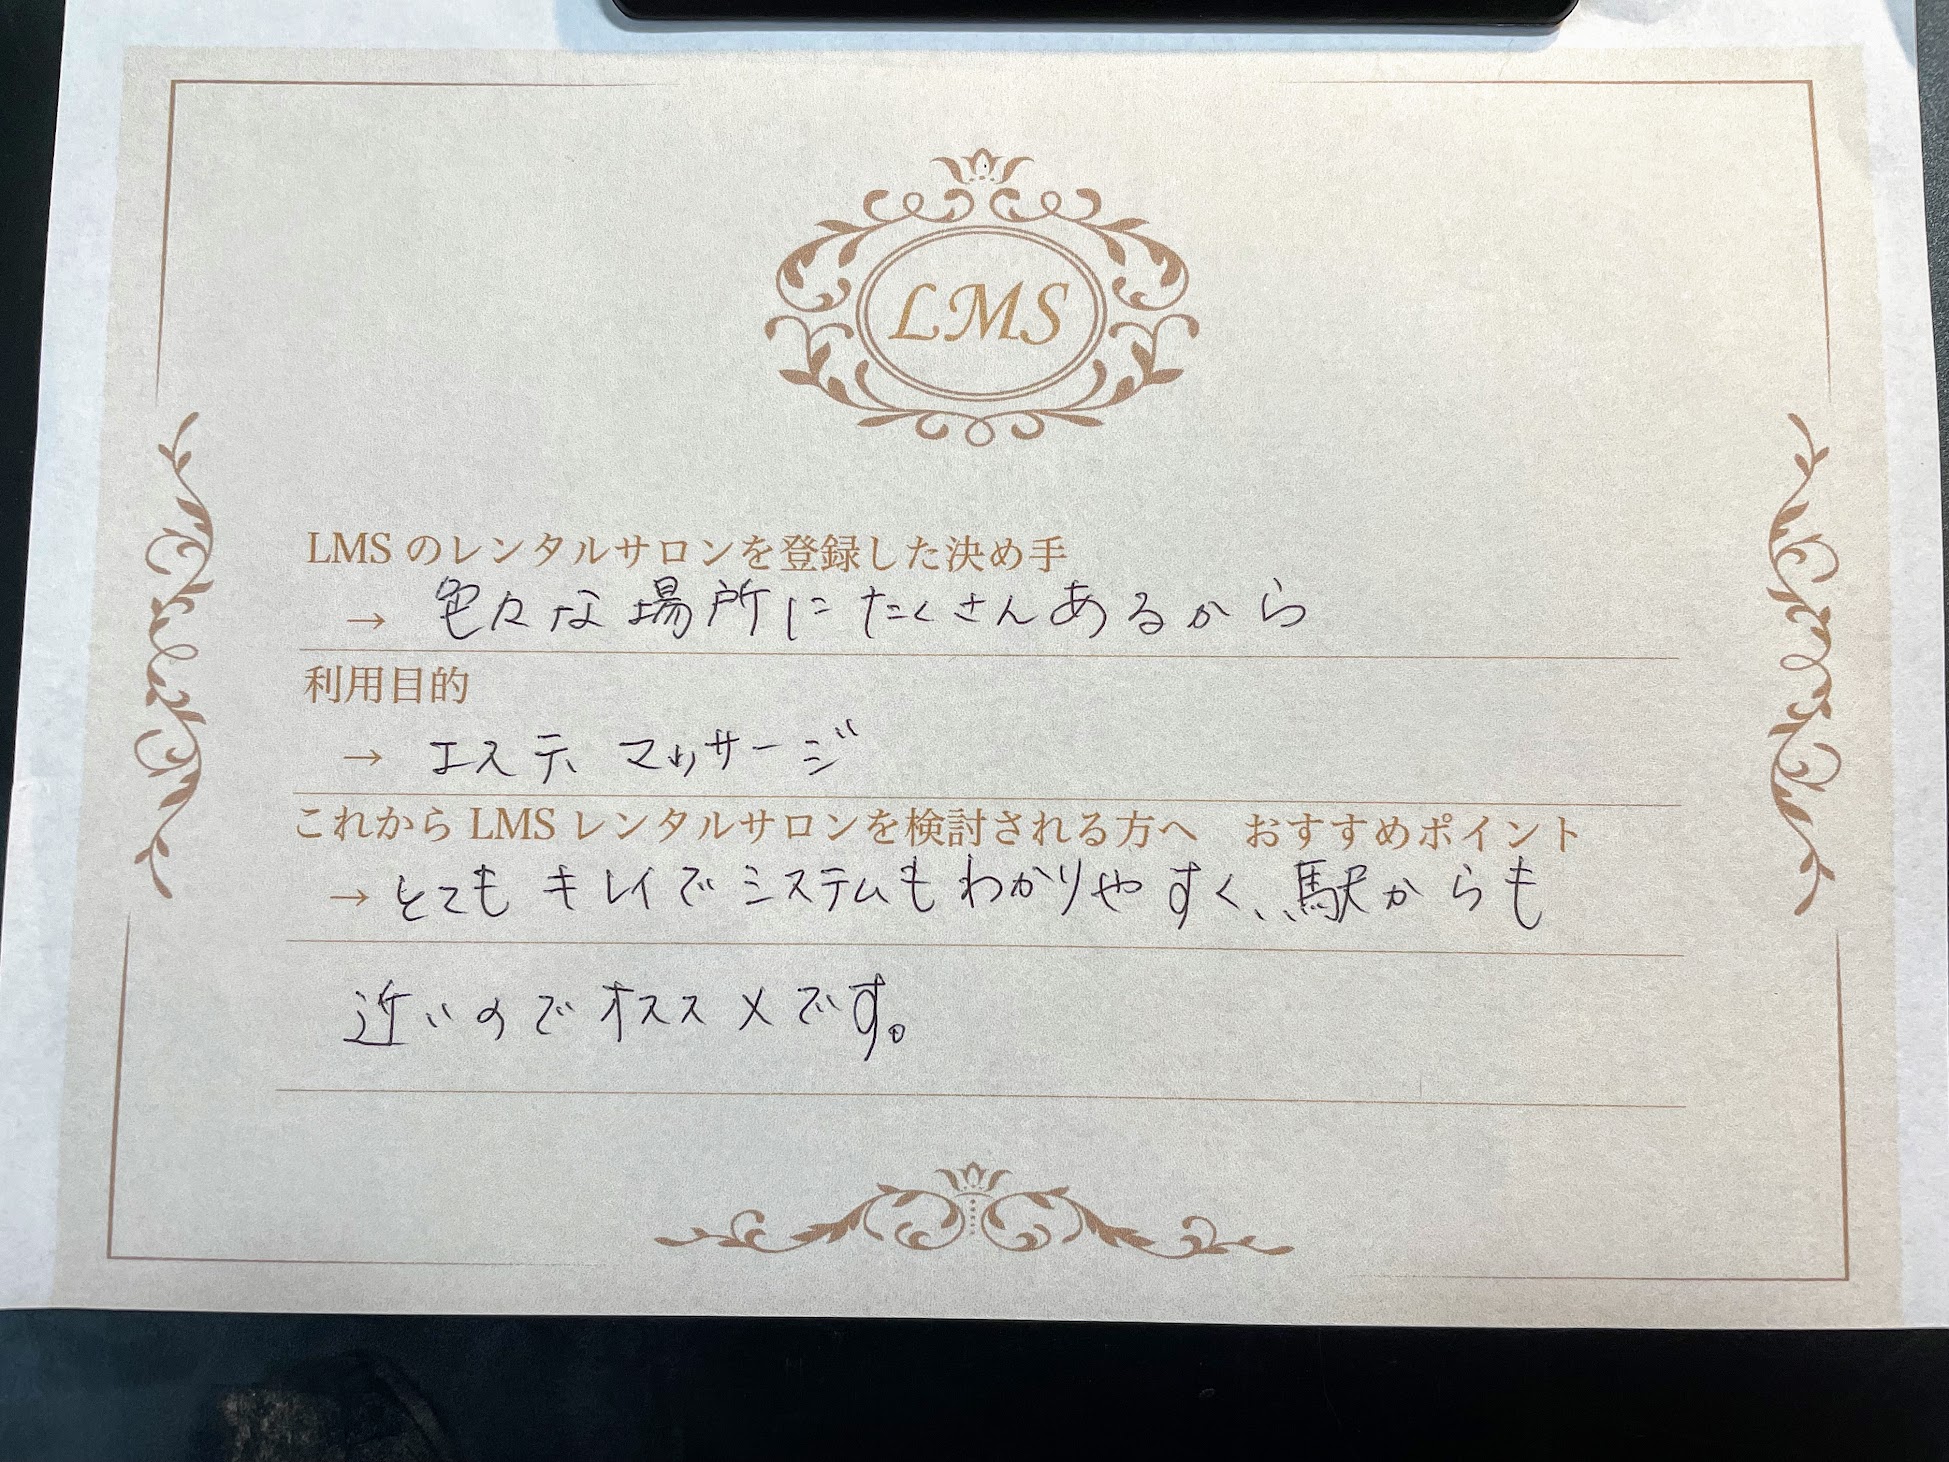 LMS
LMS のレンタルサロンを登録した決め手
→ 色々な場所にたくさんあるから
利用目的
→ エステ、マッサージ
これから LMS レンタルサロンを検討される方へ　おすすめポイント
→ とてもキレイでシステムもわかりやすく、駅からも
近いのでオススメです。